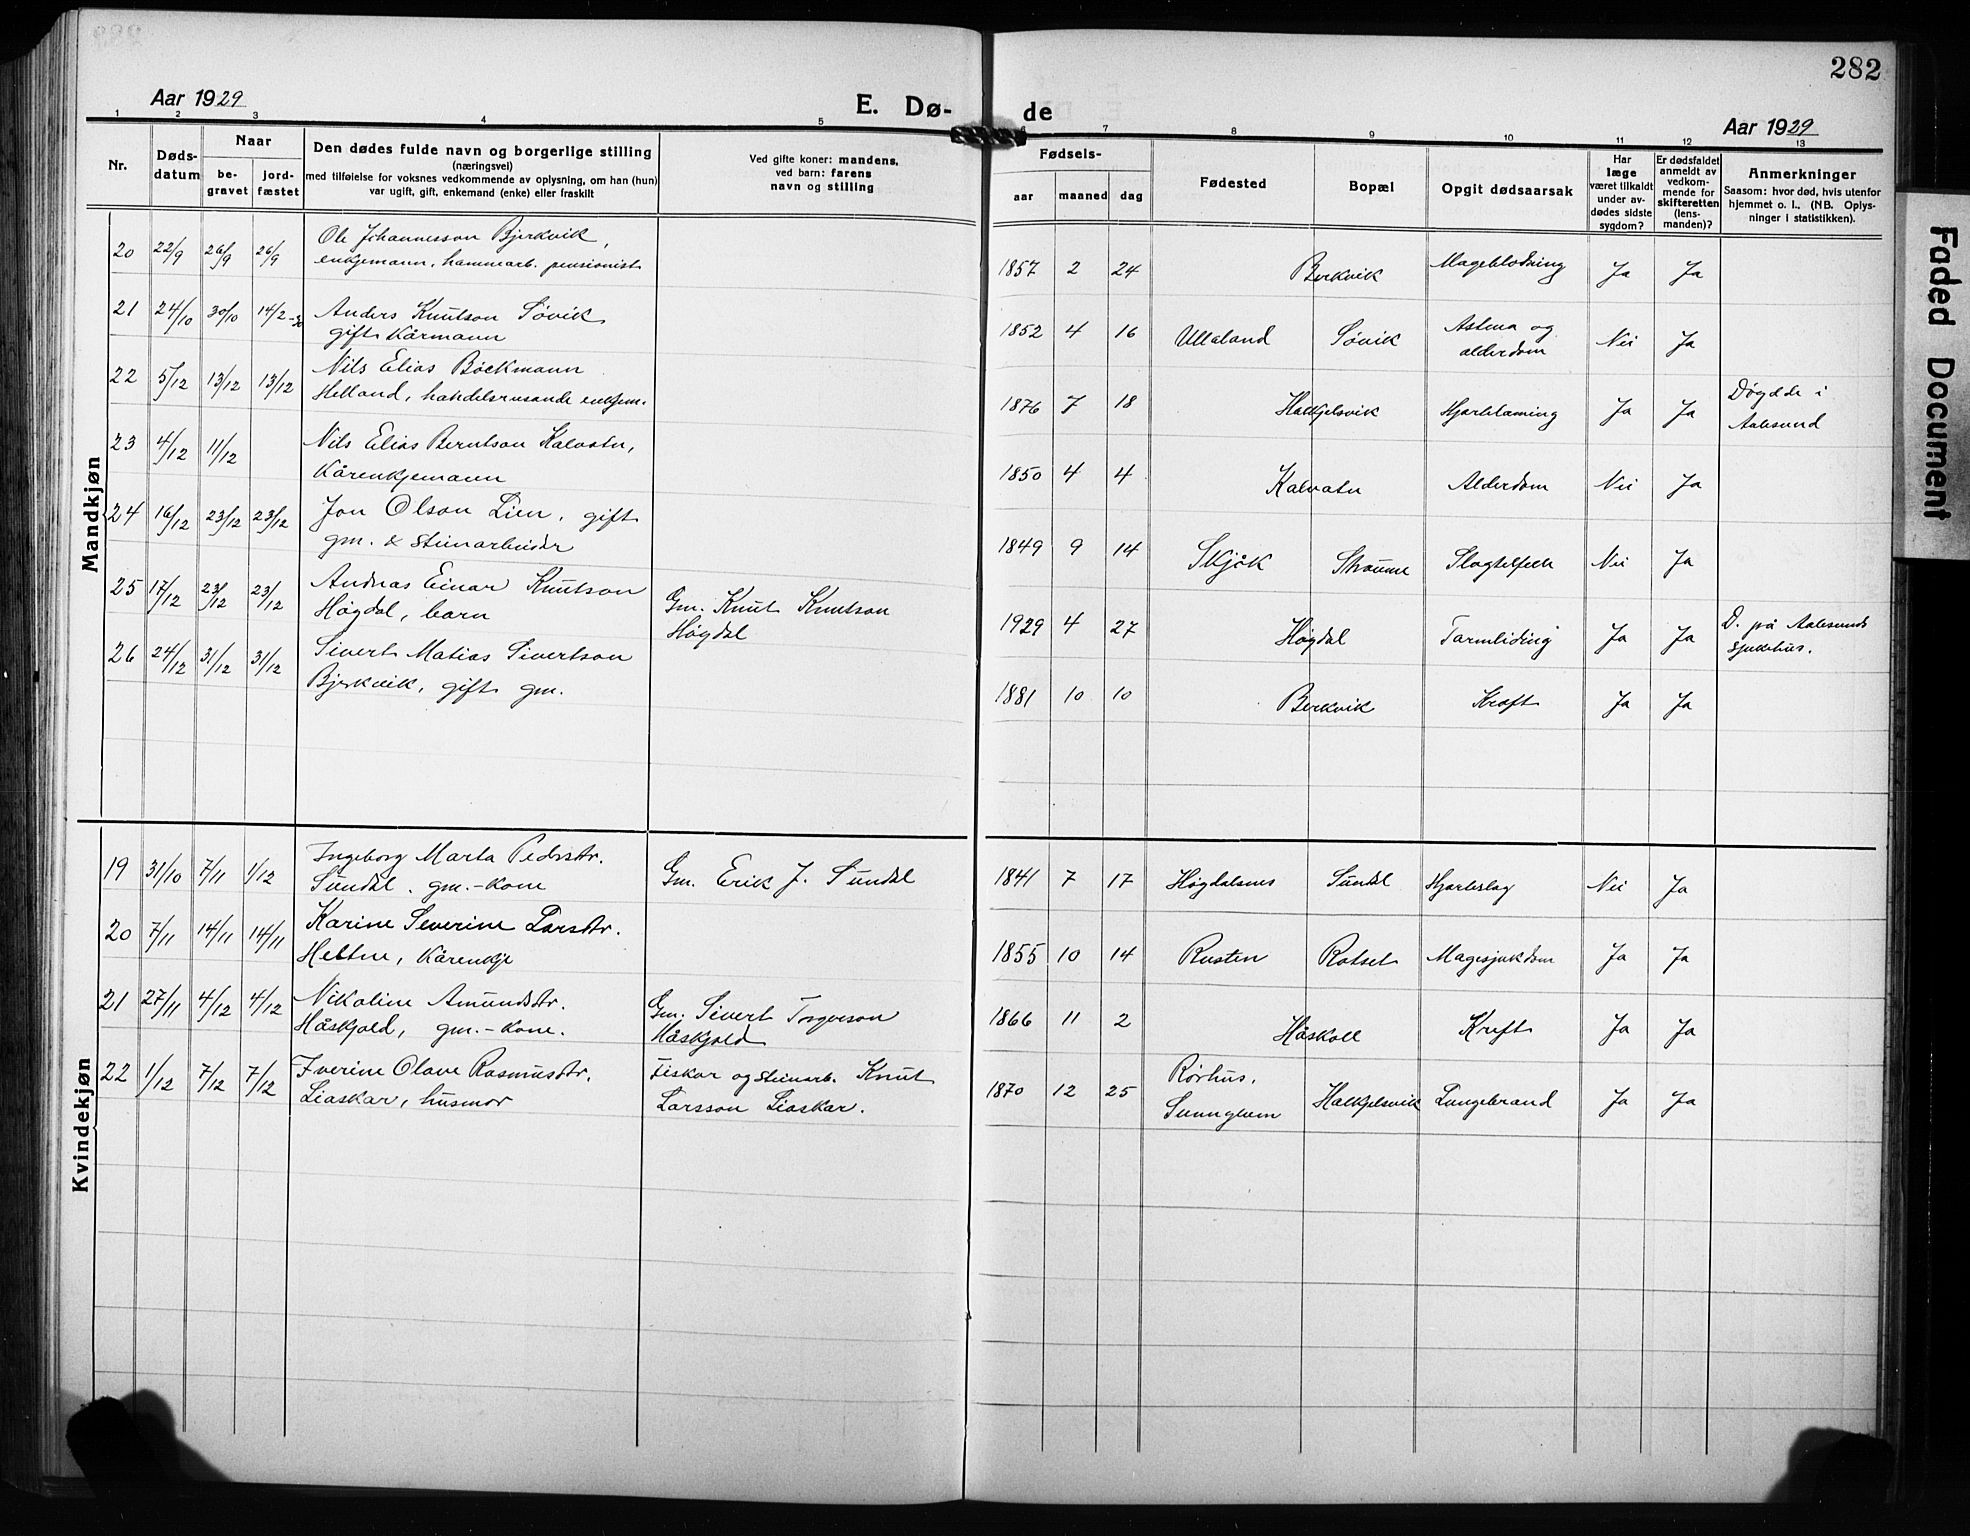 282
Aar 1929
E. Dø-
de
Aar 1929
1 2 3 4 5 6 7 8 9 10 11 12 13
Nr.
Døds-
datum
Naar
be-
gravet
jord-
fæstet
Den dødes fulde navn og borgerlige stilling
(næringsvei)
med tilføielse for voksnes vedkommende av oplysning, om han (hun)
var ugift, gift, enkemand (enke) eller fraskilt
Ved gifte koner: mandens,
ved barn: farens
navn og stilling
Fødsels-
aar maaned dag
Fødested
Bopæl
Opgit dødsaarsak
Har
læge
været tilkaldt
under av-
dødes sidste
sygdom?
Er dødsfaldet
anmeldt av
vedkom-
mende for
skifteretten
(lens-
manden)?
Anmerkninger
Saasom: hvor død, hvis utenfor
hjemmet o. l., (NB. Oplys-
ninger i statistikken).
Mandkjøn
20 22/9 26/9 26/9 Ole Johannesson Bjerkvik,
enkjemann, hammarb. pensionist
1857 2 24 Berkvik Mageblødning Ja Ja
21 24/10 30/10 14/2-30 Anders Knutson Søvik
gift Kårmann
1852 4 16 Ullaland Søvik Astma og
alderdom Nei Ja
22 5/12 13/12 13/12 Nils Elias Böckmann
Helland, handelsreisande enkjem.
1876 7 18 Halkjelsvik Hjartelaming Ja Ja Døydde i
Aalesund
23 4/12 11/12 Nils Elias Berntson Kalvatn,
Kårenkjemann
1850 4 4 Kalvatn Alderdom Nei Ja
24 16/12 23/12 23/12 Jon Olson Lien, gift
gm. & Steinarbeider
1849 9 14 Skjåk Straume Slagtelfelle Nei Ja
25 17/12 23/12 23/12 Andreas Einar Knutson
Høgdal, barn
Gm. Knut Knutson
Høgdal
1929 4 27 Høgdal Tarmliding Ja Ja D. på Aalesunds
sjukehus.
26 24/12 31/12 31/12 Sivert Matias Sivertson
Bjerkvik, gift gm.
1881 10 10 Berkvik Kræft Ja Ja
Kvindekjøn
19 31/10 7/11 1/12 Ingeborg Marta Pedrstr.
Sundal. gm.-kone
Gm. Erik J. Sundal
1841 7 17 Høgdalsnes Sundal Hjarteslag Nei Ja
20 7/11 14/11 14/11 Karine Severine Larsdtr.
Heltne, Kårenkje
1855 10 14 Rusten Rotset Magesjukdom Ja Ja
21 27/11 4/12 4/12 Nikoline Amundsdtr.
Håskjold, gm.-kone.
Gm. Sivert Torgerson
Håskjold
1866 11 2 Håskoll Kreft Ja Ja
22 1/12 7/12 7/12 Iverine Olave Rasmusdtr.
Liaskar, husmor
Fiskar og Steinarb. Knut
Larsson Liaskar.
1870 12 25 Rørhus,
Sunnylven Halkjelsvik Lungebrand Ja Ja
Faded Document